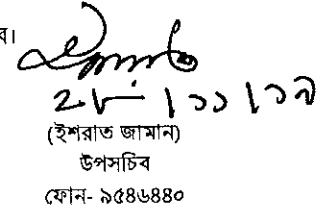 ব।
২৮|১১|১৯
(ইশরাত জামান)
উপসচিব
ফোন- ৯৫৪৬৪৪০